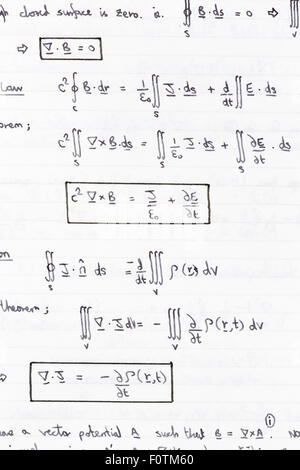 closed surface is zero. ie. ∯_S B·ds = 0 ⇒ ∭
⇒ ∇·B = 0
Law c² ∮_C B·dr = 1/ε₀ ∬_S J·ds + d/dt ∬_S E·ds
orem;
c² ∬_S ∇×B·ds = ∬_S 1/ε₀ J·ds + ∬_S ∂E/∂t·ds
c² ∇×B = J/ε₀ + ∂E/∂t
on ∯_S J·n̂ ds = -d/dt ∭_V ρ(r,t) dV
theorem;
∭_V ∇·J dV = - ∭_V ∂/∂t ρ(r,t) dV
⇒ ∇·J = - ∂ρ(r,t)/∂t
has a vector potential A such that B = ∇×A. (i) No
alamy
Image ID: F0TM60
www.alamy.com